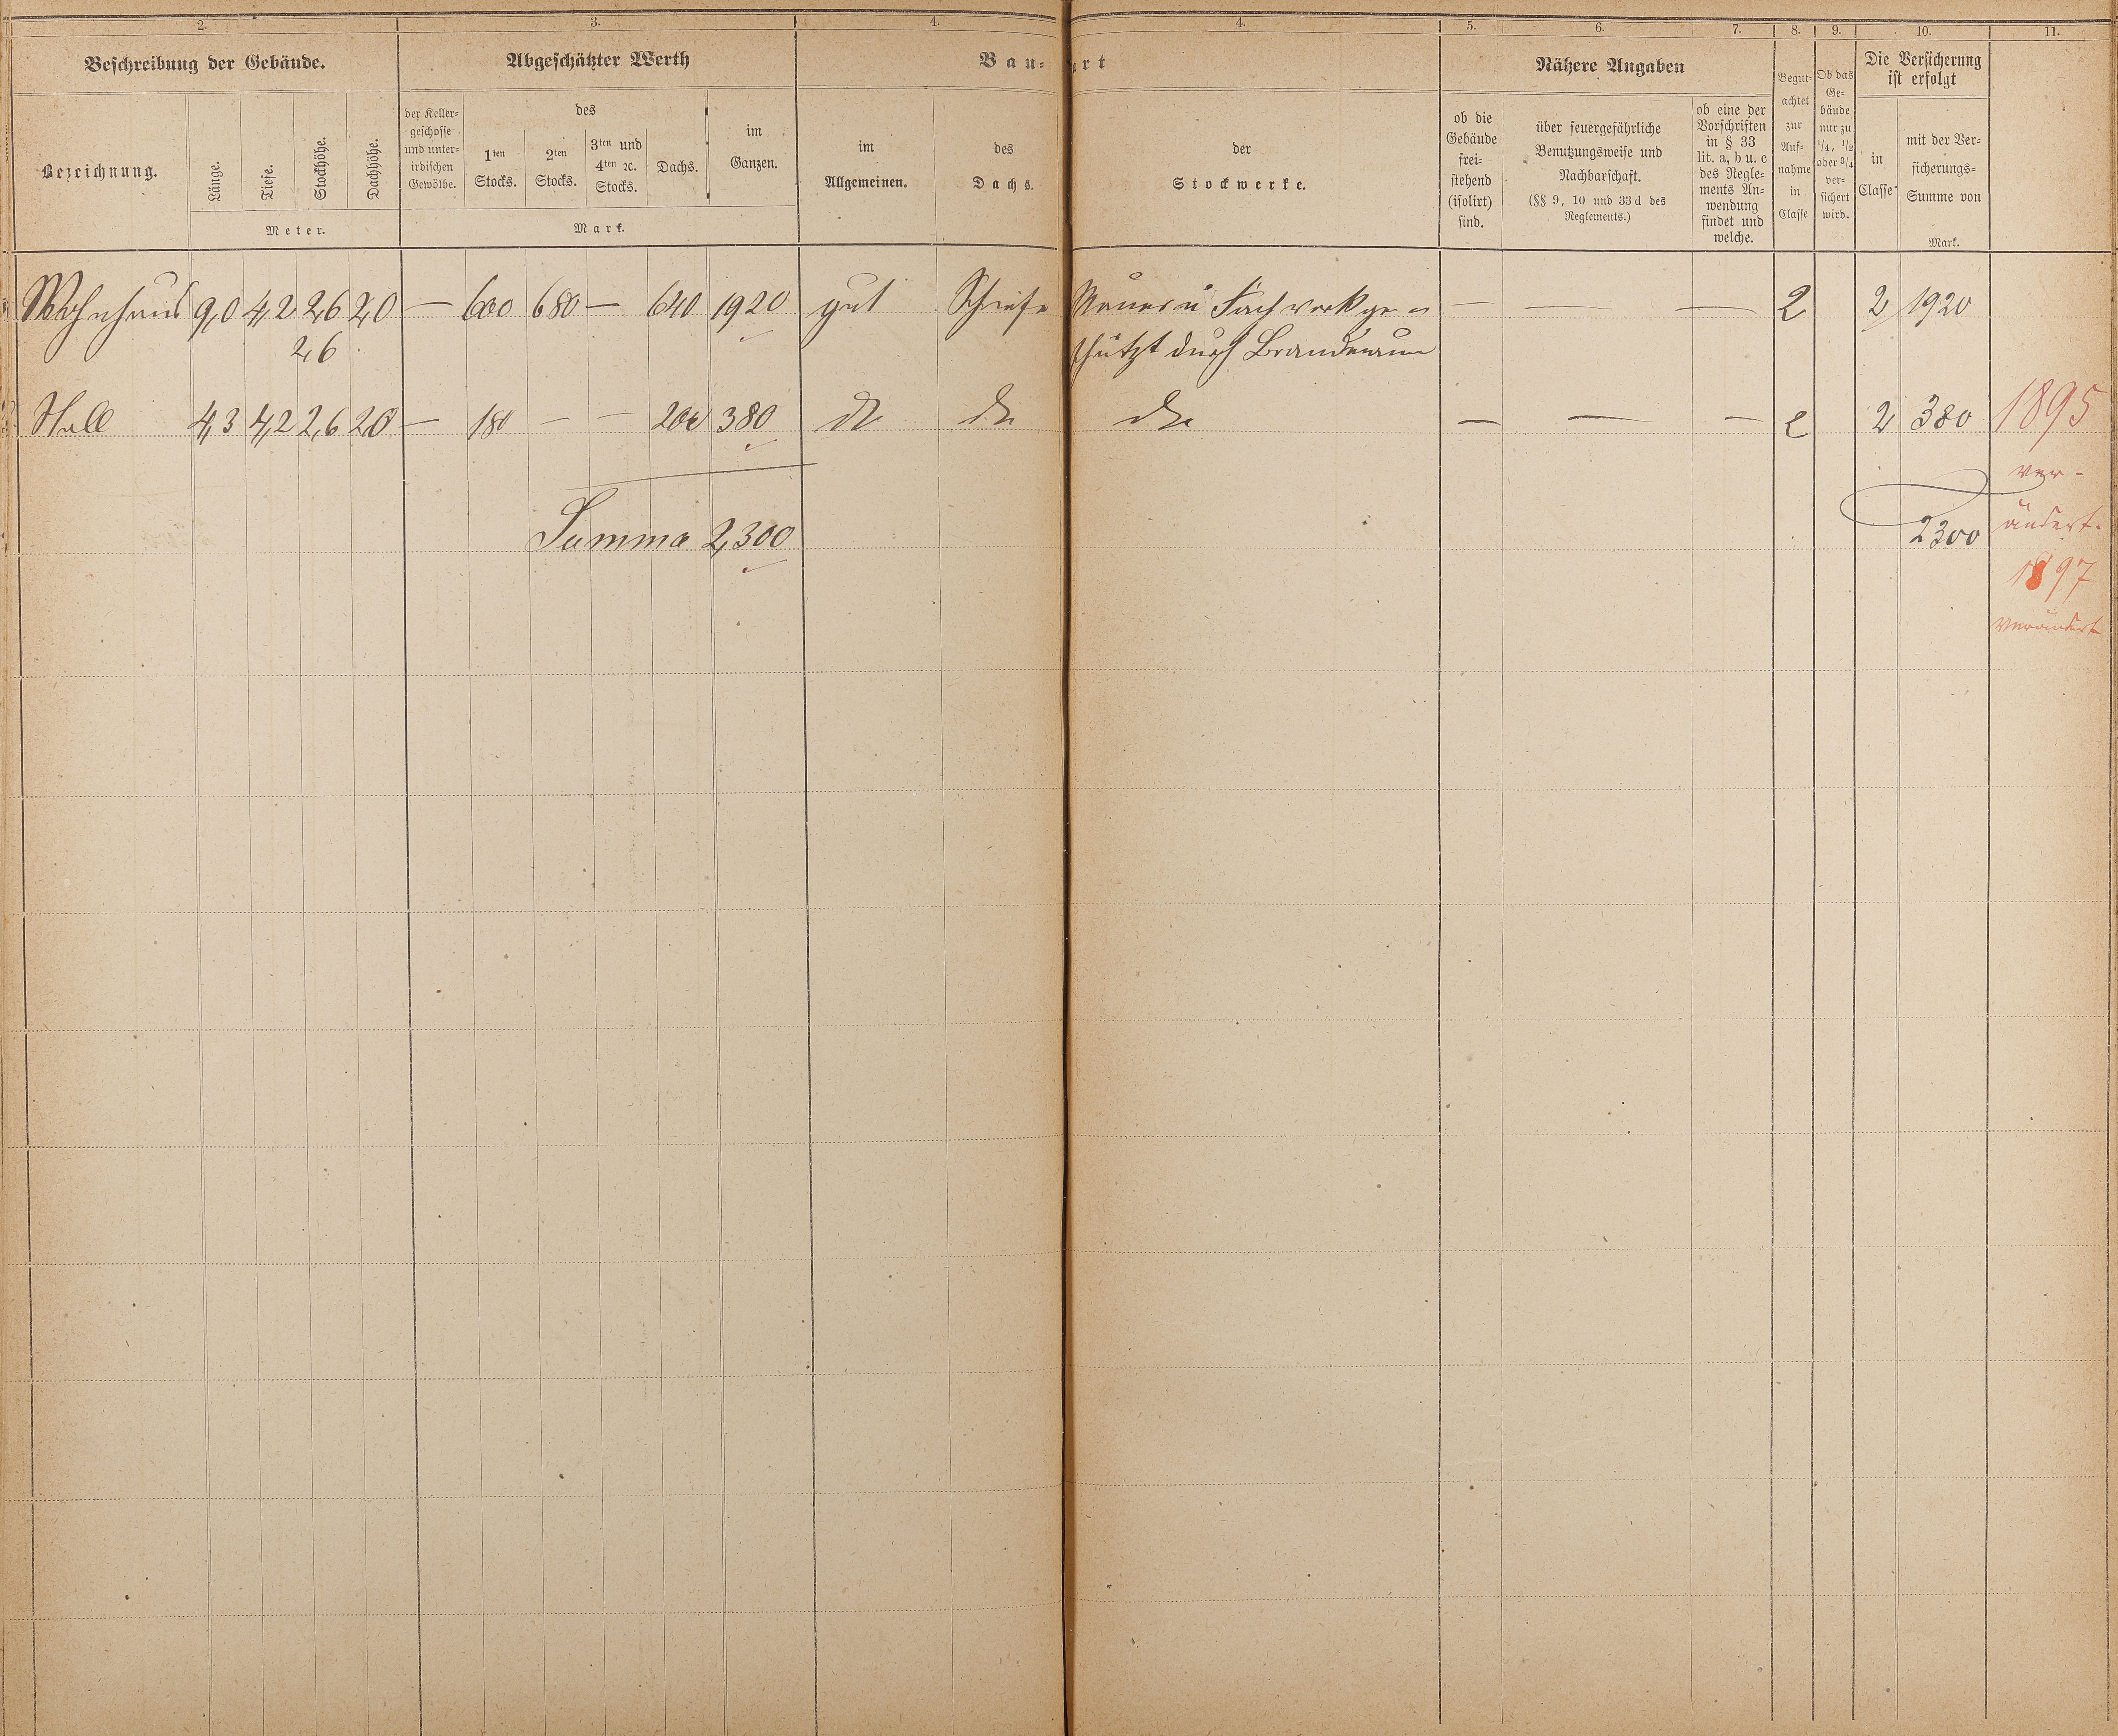 2. 3. 4. 4. 5. 6. 7. 8. 9. 10. 11.
Beschreibung der Gebäude. Abgeschätzter Werth Bau- art Nähere Angaben
Bezeichnung.
Länge.
Tiefe.
Stockhöhe.
Dachhöhe.
Meter.
der Keller-
geschosse
und unter-
irdischen
Gewölbe.
des
1ten
Stocks.
2ten
Stocks.
3ten und
4ten ꝛc.
Stocks.
Dachs.
im
Ganzen.
Mark.
im
Allgemeinen.
des
Dachs.
der
Stockwerke.
ob die
Gebäude
frei-
stehend
(isolirt)
sind.
über feuergefährliche
Benutzungsweise und
Nachbarschaft.
(§§ 9, 10 und 33d des
Reglements.)
ob eine der
Vorschriften
in § 33
lit. a, b u. c
des Regle-
ments An-
wendung
findet und
welche.
Begut-
achtet
zur
Auf-
nahme
in
Classe
Ob das
Ge-
bäude
nur zu
1/4, 1/2
oder 3/4
ver-
sichert
wird.
Die Versicherung
ist erfolgt
in
Classe
mit der Ver-
sicherungs-
Summe von
Mark.
Wohnhaus 9,0 4,2 2,6 2,0 — 600 680 — 640 1920 gut Schiefe Mauer u Fachwerk ge- — — — 2 2 1920
2,6 schützt durch
Stall 4,3 4,2 2,6 2,0 — 180 — — 200 380 do do do — — — 2 2 380 1895
ver-
Summa 2,300 2300 ändert.
1897
verändert